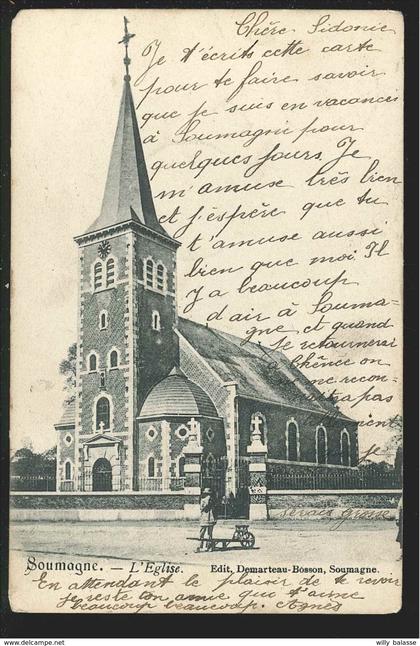 Chère Sidonie
Je t'écrits cette carte
pour te faire savoir
que je suis en vacances
à Soumagne pour
quelques jours. Je
m'amuse très bien
et j'éspère que tu
t'amuse aussi
bien que moi. Il
y a beaucoup
d'air à Souma-
gne et quand
je retournerai
à Chênée on
me recon-
pas
serais grosse
Soumagne. — L'Eglise.
Edit, Demarteau-Bosson, Soumagne.
En attendant le plaisir de te revoir
je reste ton amie que t'aime
beaucoup beaucoup beaucoup. Agnès